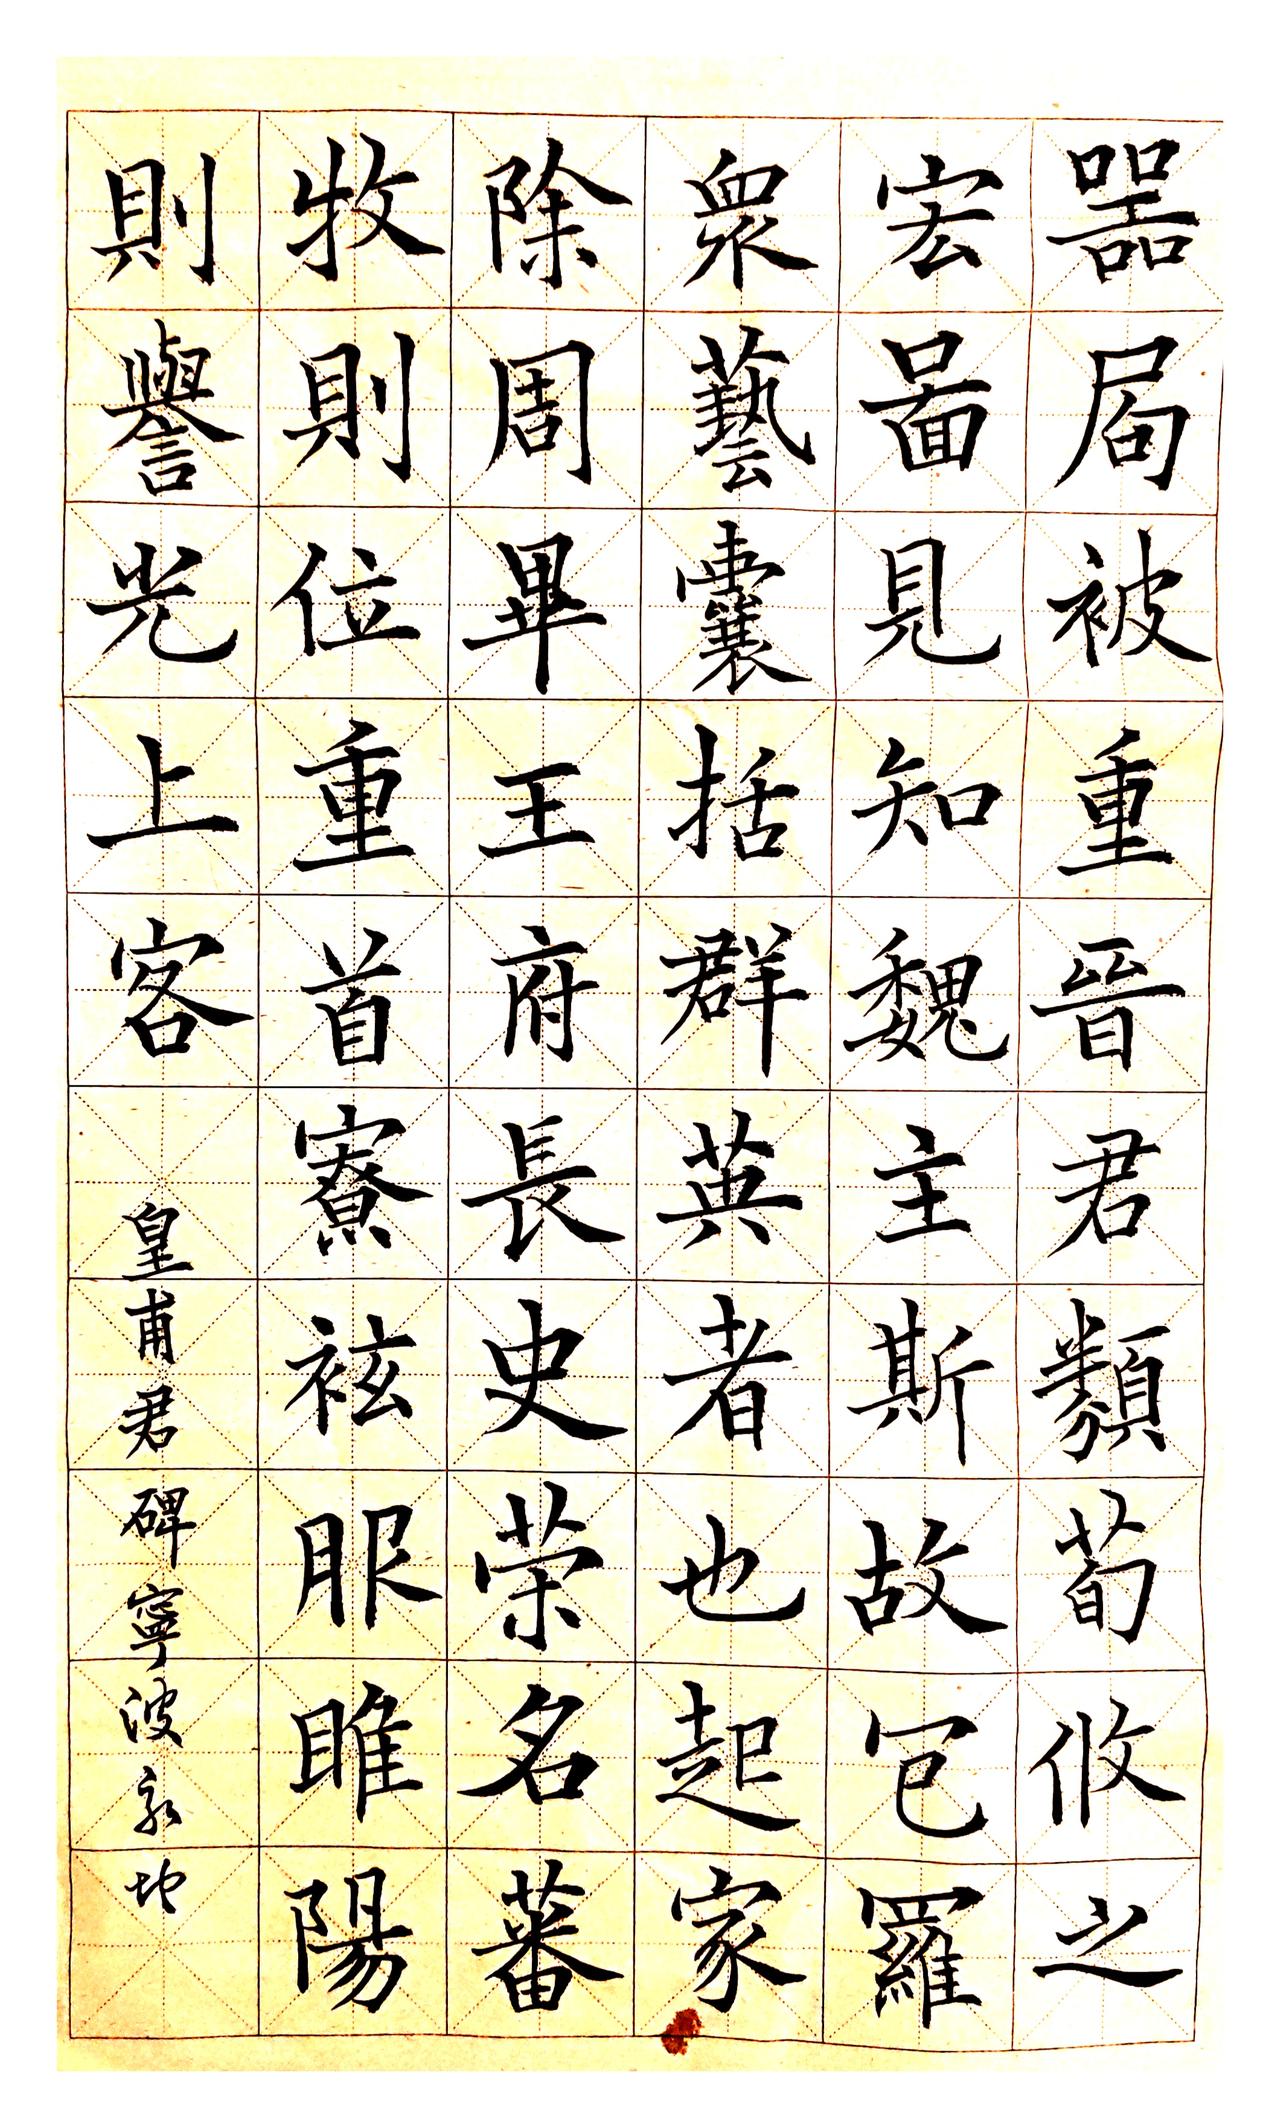 器局被重晉君類荀攸之
宏啚見知魏主斯故包羅
衆藝囊括群英者也起家
除周畢王府長史荣名蕃
牧則位重首寮袨服睢陽
則譽光上客
皇甫君碑寧波永地